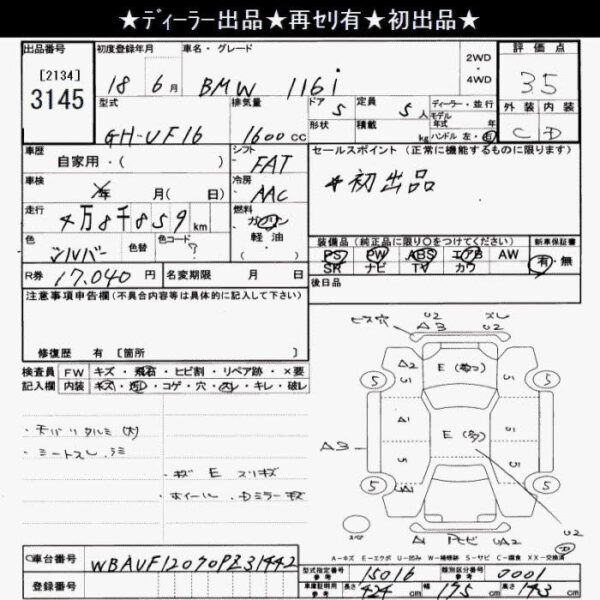 ★ディーラー出品★再セリ有★初出品★
出品番号 初度登録年月 車名・グレード 2WD・4WD 評価点
[2134] 3145 18年6月 BMW 116i 3.5
型式 排気量 ドア 5 定員 5人 ディーラー・並行 外装 内装
GH-UF16 1600cc 形状 積載 kg モデル年式 年 ハンドル 左・右 C D
車歴 自家用・( ) シフト FAT セールスポイント (正常に機能するものに限ります)
車検 年 月( 日) 冷房 AAC *初出品
走行 4万8千859km 燃料 ガソリン 軽油
色 シルバー 色替 色コード ? 装備品 (純正品に限り○をつけてください) 新車保証書
PS PW ABS エアB AW 有・無
R券 17,040円 名変期限 月 日 SR ナビ TV カワ
注意事項申告欄 (不具合内容等は具体的に記入して下さい) 後日品
修復歴 有 [箇所
検査員記入欄 FW キズ・飛石・ヒビ割・リペア跡・×要
内装 キズ・汚・コゲ・穴・スレ・キレ・破レ
ビス穴 A3 U2 U2 スレ
A2 E (めつ) S1
5 5
S1 S1
E (多)
A3 5 5
5 5
A1 A1 ヒビ UA2 U2
・天バリタルミ(大)
・シートスレ、シミ
・キズ E スリキズ
・ホイール・Dミラーキズ
スペ
A-キズ E-エクボ U-凹み W-補修跡 S-サビ C-腐食 XX-交換済
車台番号 WBAUF12070PZ31442 型式指定番号 参考 15016 類別区分番号 参考 0001
登録番号 車庫証明用 参考 長さ 424cm 幅 175cm 高さ 143cm